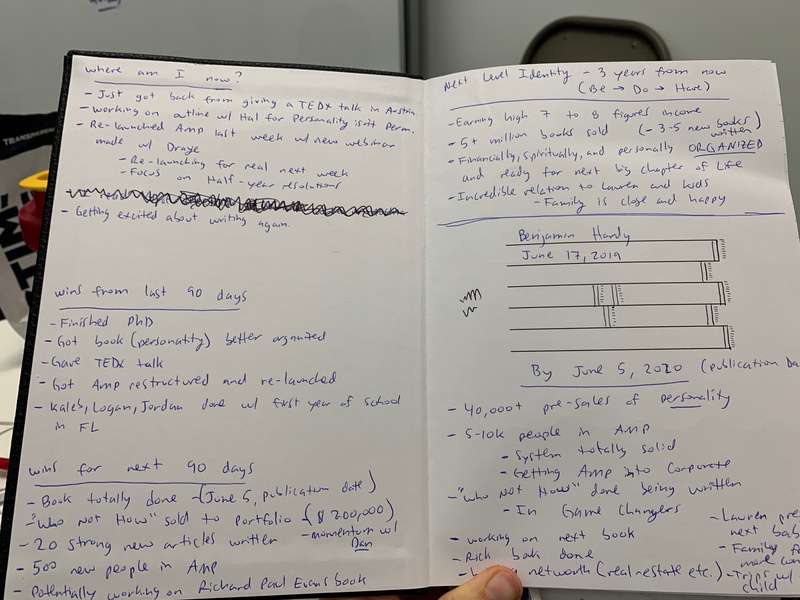 where am I now?
- Just got back from giving a TEDx talk in Austria
- working on outline w/ Hal for Personality isn't Perm.
- Re-launched Amp last week w/ new webinar
made w/ Draye
- Re-launching for real next week
- Focus on Half-year resolutions
- Getting excited about writing again.
wins from last 90 days
- Finished PhD
- Got book (personality) better organized
- Gave TEDx talk
- Got Amp restructured and re-launched
- Kaleb, Logan, Jordan done w/ first year of school
in FL
wins for next 90 days
- Book totally done - (June 5, publication date)
- "Who Not How" sold to Portfolio - ($200,000)
- 20 strong new articles written
- momentum w/
Dan
- 500 new people in Amp
- Potentially working on Richard Paul Evans book
Next Level Identity - 3 years from now
(Be → Do → Have)
- Earning high 7 to 8 figures income
- 5+ million books sold (- 3-5 new books
written)
- Financially, spiritually, and personally ORGANIZED
and ready for next big chapter of Life
- Incredible relation to Lauren and kids
- Family is close and happy
Benjamin Hardy
June 17, 2019
By June 5, 2020 (publication Da
- 40,000+ pre-sales of personality
- 5-10k people in AMP
- System totally solid
- Getting Amp into Corporate
- "Who Not How" done being written
- In Game Changers
- working on next book
- Rich book done
networth (real-estate etc.)
- Lauren pre
next bab
- Family f
more
- Trips w/
child
TRANSPARE